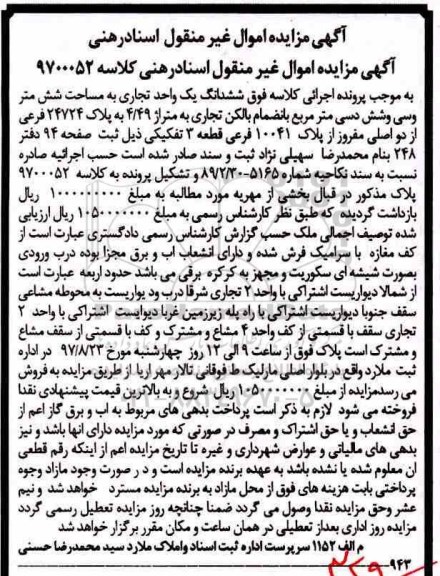 آگهی مزایده اموال غیر منقول اسناد رهنی
آگهی مزایده اموال غیر منقول اسناد رهنی کلاسه ۹۷۰۰۰۵۲
به موجب پرونده اجرائی کلاسه فوق ششدانگ یک واحد تجاری به مساحت شش متر
وسی وشش دسی متر مربع بانضمام بالکن تجاری به متراژ ۴/۴۹ به پلاک ۲۴۷۲۴ فرعی
از دو اصلی مفروز از پلاک ۱۰۰۴۱ فرعی قطعه ۳ تفکیکی ذیل ثبت صفحه ۹۴ دفتر
۲۴۸ بنام محمدرضا سهیلی نژاد ثبت و سند صادر شده است حسب اجرائیه صادره
نسبت به سند نکاحیه شماره ۵۱۶۵-۸۹/۲/۳۰ و تشکیل پرونده به کلاسه ۹۷۰۰۰۵۲
پلاک مذکور در قبال بخشی از مهریه مورد مطالبه به مبلغ ریال
بازداشت گردیده که طبق نظر کارشناس رسمی به مبلغ ۱۰۵۰۰۰۰۰۰۰ ریال ارزیابی
شده توصیف اجمالی ملک حسب گزارش کارشناس رسمی دادگستری عبارت است از
کف مغازه با سرامیک فرش شده و دارای انشعاب اب و برق مجزا بوده درب ورودی
بصورت شیشه ای سکوریت و مجهز به کرکره برقی می باشد حدود اربعه عبارت است
از شمالا دیواریست اشتراکی با واحد ۲ تجاری شرقا درب ود یواریست به محوطه مشاعی
سقف جنوبا دیواریست اشتراکی با راه پله زیرزمین غربا دیوایست اشتراکی با واحد ۲
تجاری سقف با قسمتی از کف واحد ۴ مشاع و مشترک و کف با قسمتی از سقف مشاع
و مشترک است پلاک فوق از ساعت ۹ الی ۱۲ روز چهارشنبه مورخ ۹۷/۸/۲۳ در اداره
ثبت ملارد واقع در بلوار اصلی مارلیک ط فوقانی تالار مهراریا از طریق مزایده به فروش
می رسدمزایده از مبلغ ۱۰۵۰۰۰۰۰۰۰ ریال شروع و به بالاترین قیمت پیشنهادی نقدا
فروخته می شود لازم به ذکر است پرداخت بدهی های مربوط به اب و برق گاز اعم از
حق انشعاب و یا حق اشتراک و مصرف در صورتی که مورد مزایده دارای انها باشد و نیز
بدهی های مالیاتی و عوارض شهرداری و غیره تا تاریخ مزایده اعم از اینکه رقم قطعی
ان معلوم شده یا نشده باشد به عهده برنده مزایده است و د ر صورت وجود مازاد وجوه
پرداختی بابت هزینه های فوق از محل مازاد به برنده مزایده مسترد خواهد شد و نیم
عشر وحق مزایده نقدا وصول می گردد ضمنا چنانچه روز مزایده تعطیل رسمی گردد
مزایده روز اداری بعداز تعطیلی در همان ساعت و مکان مقرر برگزار خواهد شد
م الف ۱۱۵۲ سرپرست اداره ثبت اسناد واملاک ملارد سید محمدرضا حسنی
۹۴۳